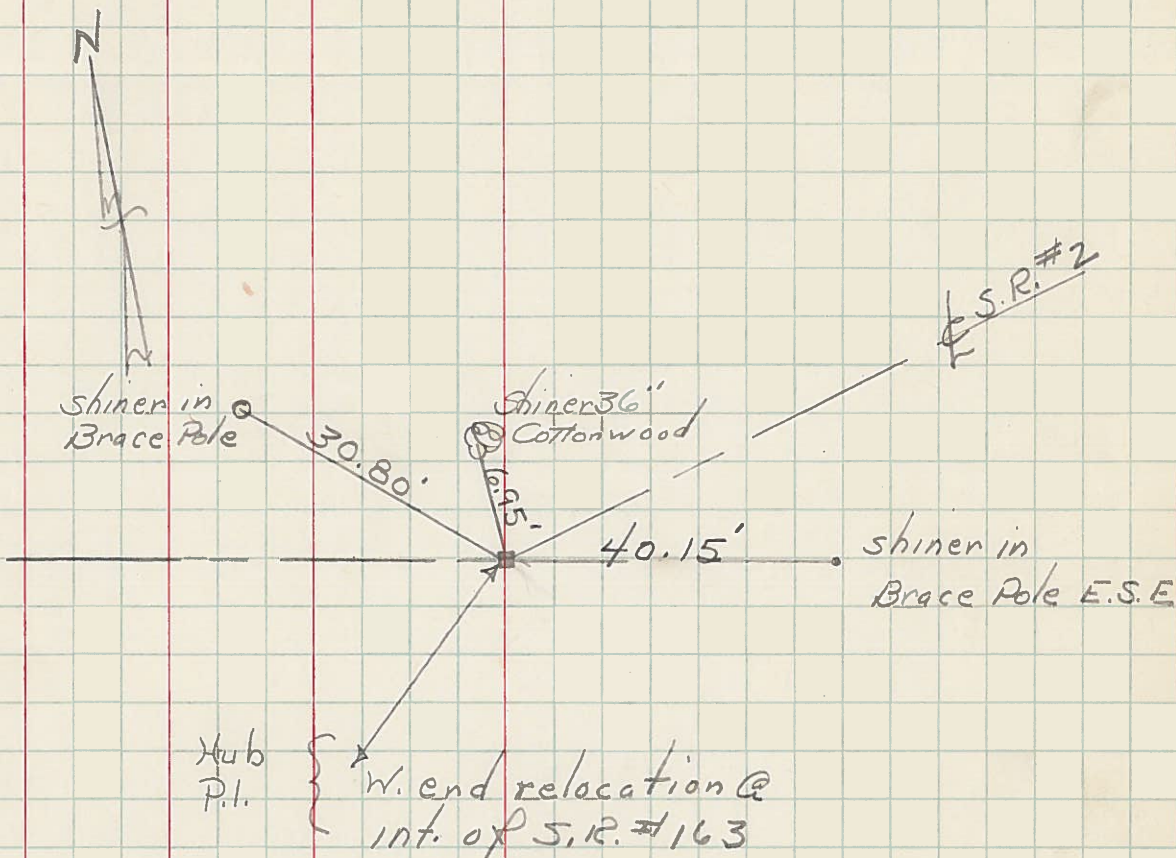 N
℄ S.R. #2
shiner in
Brace Pole
30.80'
Shiner 36"
Cottonwood
40.15'
shiner in
Brace Pole E.S.E
Hub
P.I.
W. end relocation @
int. of S.R. #163